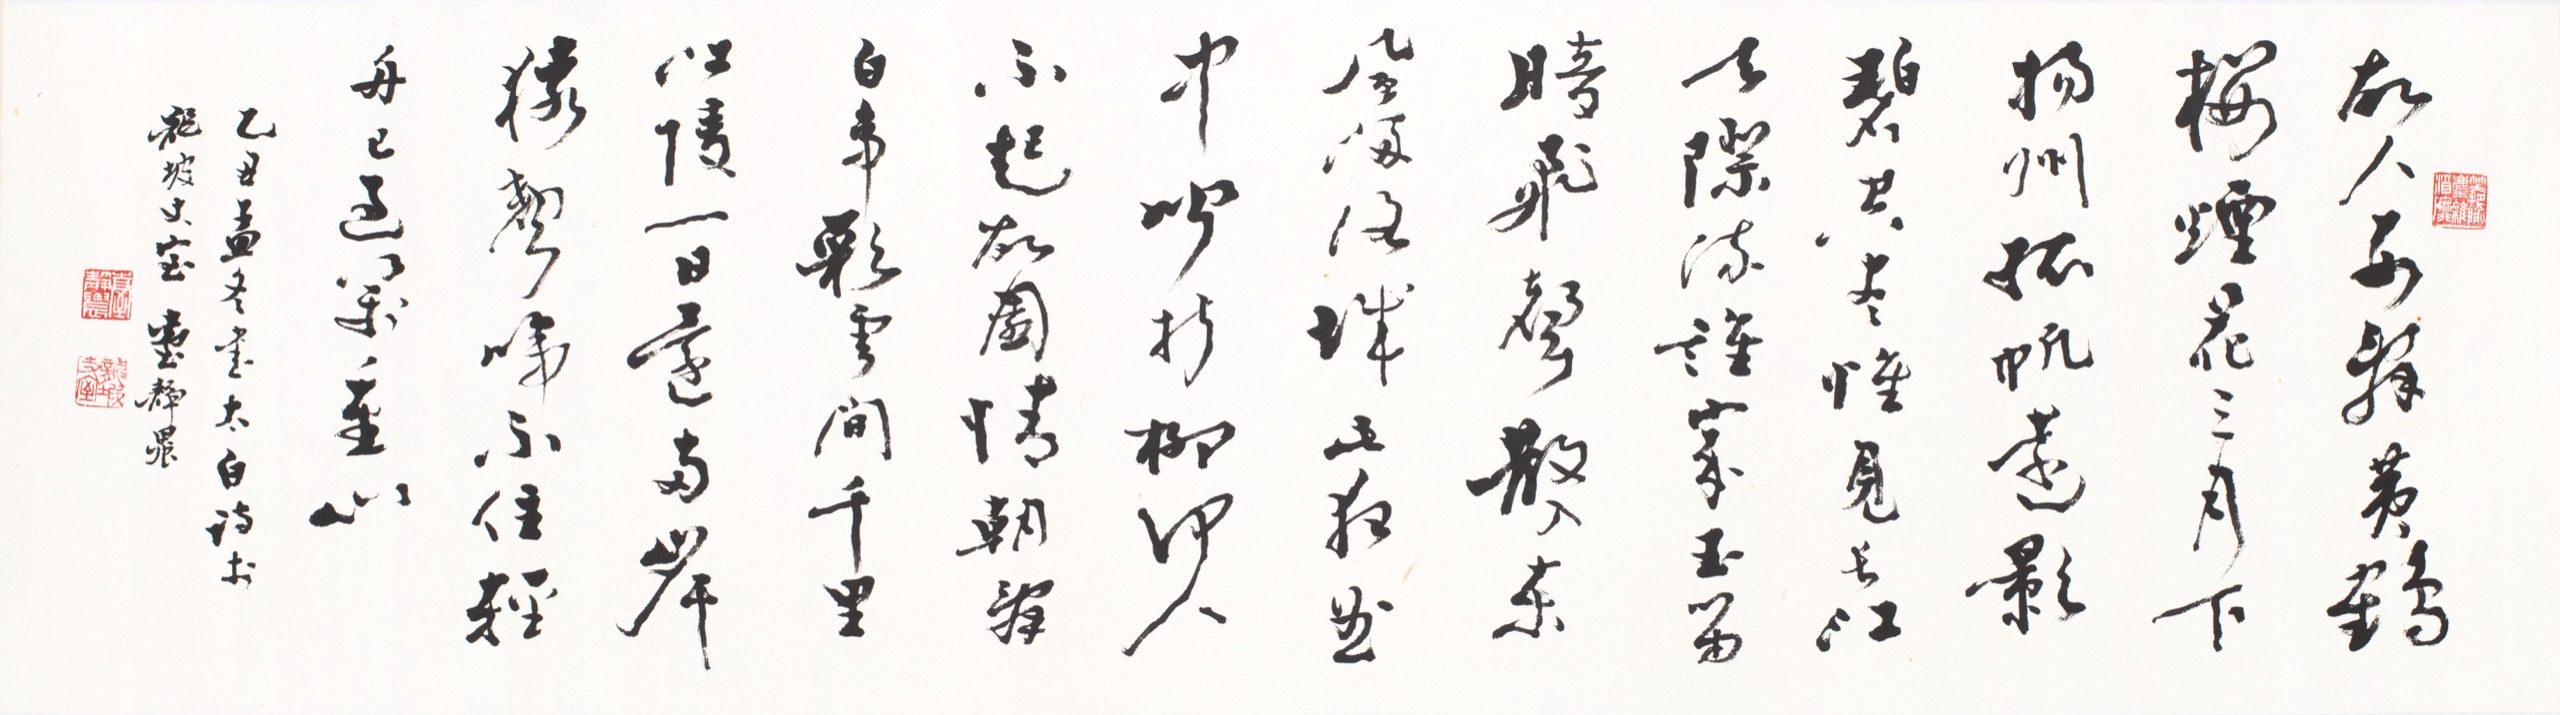 故人西辭黃鶴
樓煙花三月下
揚州孤帆遠影
碧空盡惟見長江
天際流誰家玉笛
暗飛聲散入東
風滿洛城此夜曲
中聞折柳何人
不起故園情朝辭
白帝彩雲間千里
江陵一日還兩岸
猿聲啼不住輕
舟已過萬重山
乙丑孟冬書太白詩於
龍坡丈室 臺靜農
臺靜農
龍坡丈室